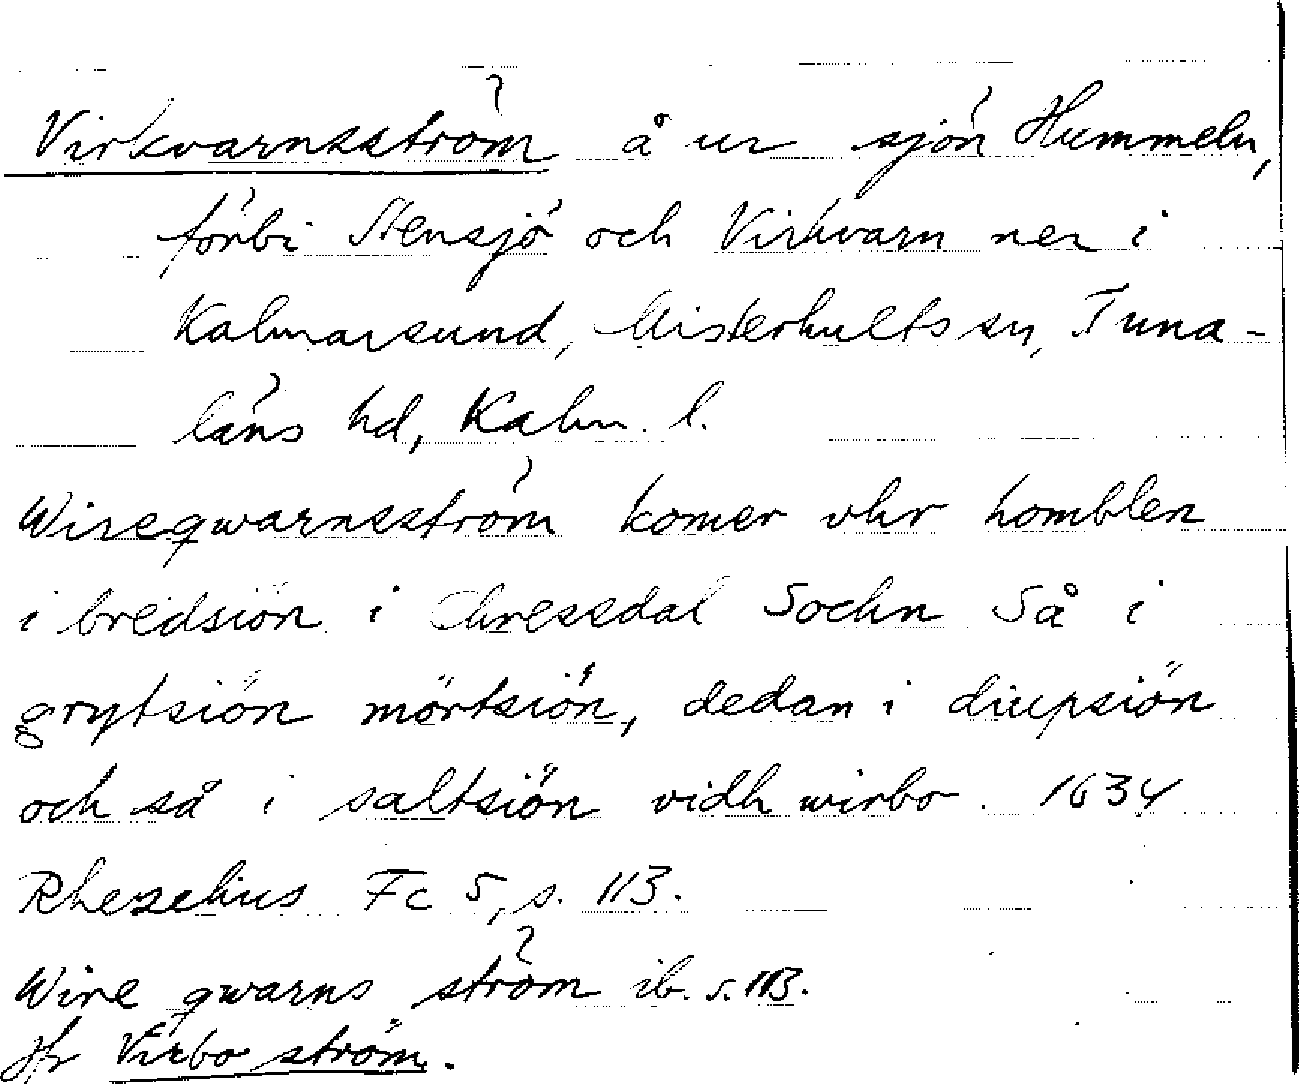 Virkvarnsström å ur sjön Hummeln,
förbi Stensjö och Virkvarn ner i
Kalmarsund, Misterhults sn, Tuna-
läns hd, Kalm. l.
Wireqwarnsström komer uhr homblen
i bredsiön i Chressdal Sochn Så i
grytsiön mörtsiön, dedan i diupsiön
och så i saltsiön vidh wirbo. 1634
Rhezelius Fc 5, s. 113.
Wire qwarns ström ib. s. 113.
Jfr Virbo ström.